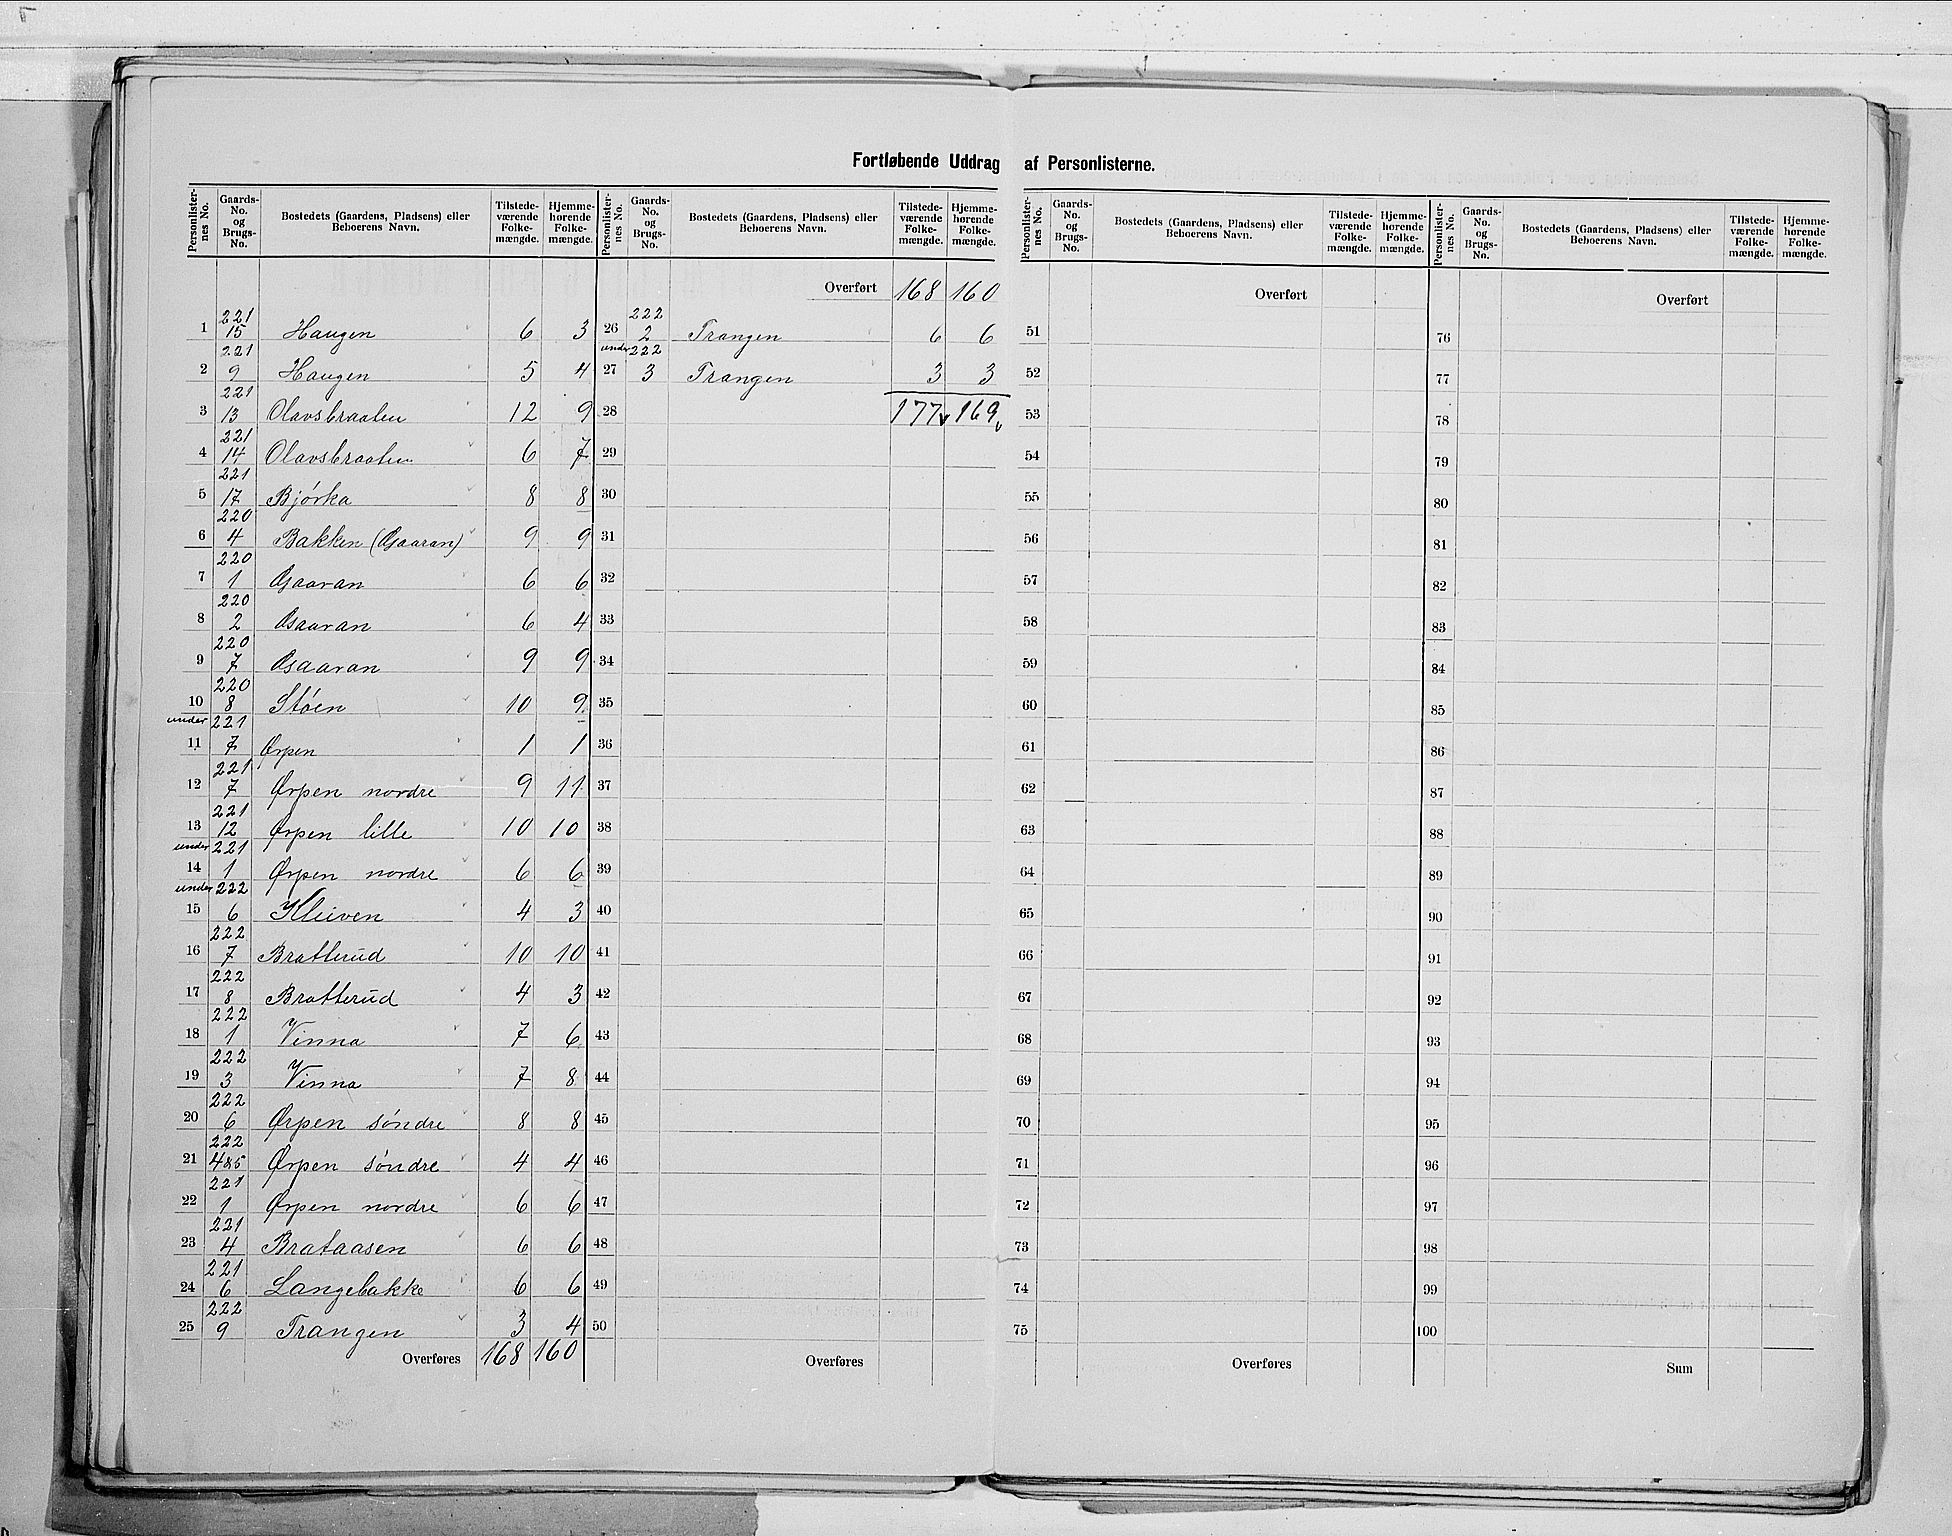 Fortløbende Uddrag af Personlisterne.
Personlister- nes No. | Gaards- No. og Brugs- No. | Bostedets (Gaardens, Pladsens) eller Beboerens Navn. | Tilstede- værende Folke- mængde. | Hjemme- hørende Folke- mængde.
1 | 221 15 | Haugen | 6 | 3
2 | 221 9 | Haugen | 5 | 4
3 | 221 13 | Olavsbraaten | 12 | 9
4 | 221 14 | Olavsbraaten | 6 | 7
5 | 221 17 | Bjørka | 8 | 8
6 | 220 4 | Bakken (Gaaran) | 9 | 9
7 | 220 1 | Gaaran | 6 | 6
8 | 220 2 | Gaaran | 6 | 4
9 | 220 7 | Gaaran | 9 | 9
10 | 220 8 | Støen | 10 | 9
11 | under 221 7 | Ørpen | 1 | 1
12 | 221 7 | Ørpen nordre | 9 | 11
13 | 221 12 | Ørpen lille | 10 | 10
14 | under 221 1 | Ørpen nordre | 6 | 6
15 | under 222 6 | Kleiven | 4 | 3
16 | 222 7 | Bratterud | 10 | 10
17 | 222 8 | Bratterud | 4 | 3
18 | 222 1 | Vinna | 7 | 6
19 | 222 3 | Vinna | 7 | 8
20 | 222 6 | Ørpen søndre | 8 | 8
21 | 222 4&5 | Ørpen søndre | 4 | 4
22 | 221 1 | Ørpen nordre | 6 | 6
23 | 221 4 | Brataasen | 6 | 6
24 | 221 6 | Langebakke | 6 | 6
25 | 222 9 | Trangen | 3 | 4
Overføres | 168 | 160
Personlister- nes No. | Gaards- No. og Brugs- No. | Bostedets (Gaardens, Pladsens) eller Beboerens Navn. | Tilstede- værende Folke- mængde. | Hjemme- hørende Folke- mængde.
Overført | 168 | 160
26 | 222 2 | Trangen | 6 | 6
27 | under 222 3 | Trangen | 3 | 3
28 | 177 | 169
29
30
31
32
33
34
35
36
37
38
39
40
41
42
43
44
45
46
47
48
49
50
Overføres
Personlister- nes No. | Gaards- No. og Brugs- No. | Bostedets (Gaardens, Pladsens) eller Beboerens Navn. | Tilstede- værende Folke- mængde. | Hjemme- hørende Folke- mængde.
Overført
51
52
53
54
55
56
57
58
59
60
61
62
63
64
65
66
67
68
69
70
71
72
73
74
75
Overføres
Personlister- nes No. | Gaards- No. og Brugs- No. | Bostedets (Gaardens, Pladsens) eller Beboerens Navn. | Tilstede- værende Folke- mængde. | Hjemme- hørende Folke- mængde.
Overført
76
77
78
79
80
81
82
83
84
85
86
87
88
89
90
91
92
93
94
95
96
97
98
99
100
Sum